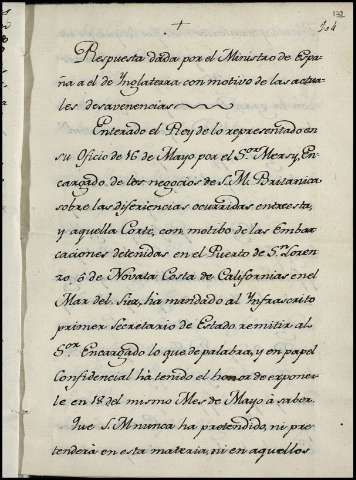 132
204
+
Respuesta dada por el Ministro de Espa-
ña a el de Ynglaterra con motivo de las actua-
les desavenencias
Enterado el Rey de lo representado en
su Oficio de 16 de Mayo por el S.or Merry, En-
cargado de los negocios de S. M. Britanica
sobre las diferiencias ocurridas entre esta,
y aquella Corte, con motibo de las Embar
caciones detenidas en el Puerto de S.n Loren
zo, ó de Novata Costa de Californias en el
Mar del Sur, ha mandado al Ynfrascrito
primer Secretario de Estado remitir al
S.or Encargado lo que de palabra, y en papel
Confidencial ha tenido el honor de exponer
le en 18 del mismo Mes de Mayo à sabor.
Que S. M nunca ha pretendido, ni pre
tenderà en esta materia, ni en aquellos